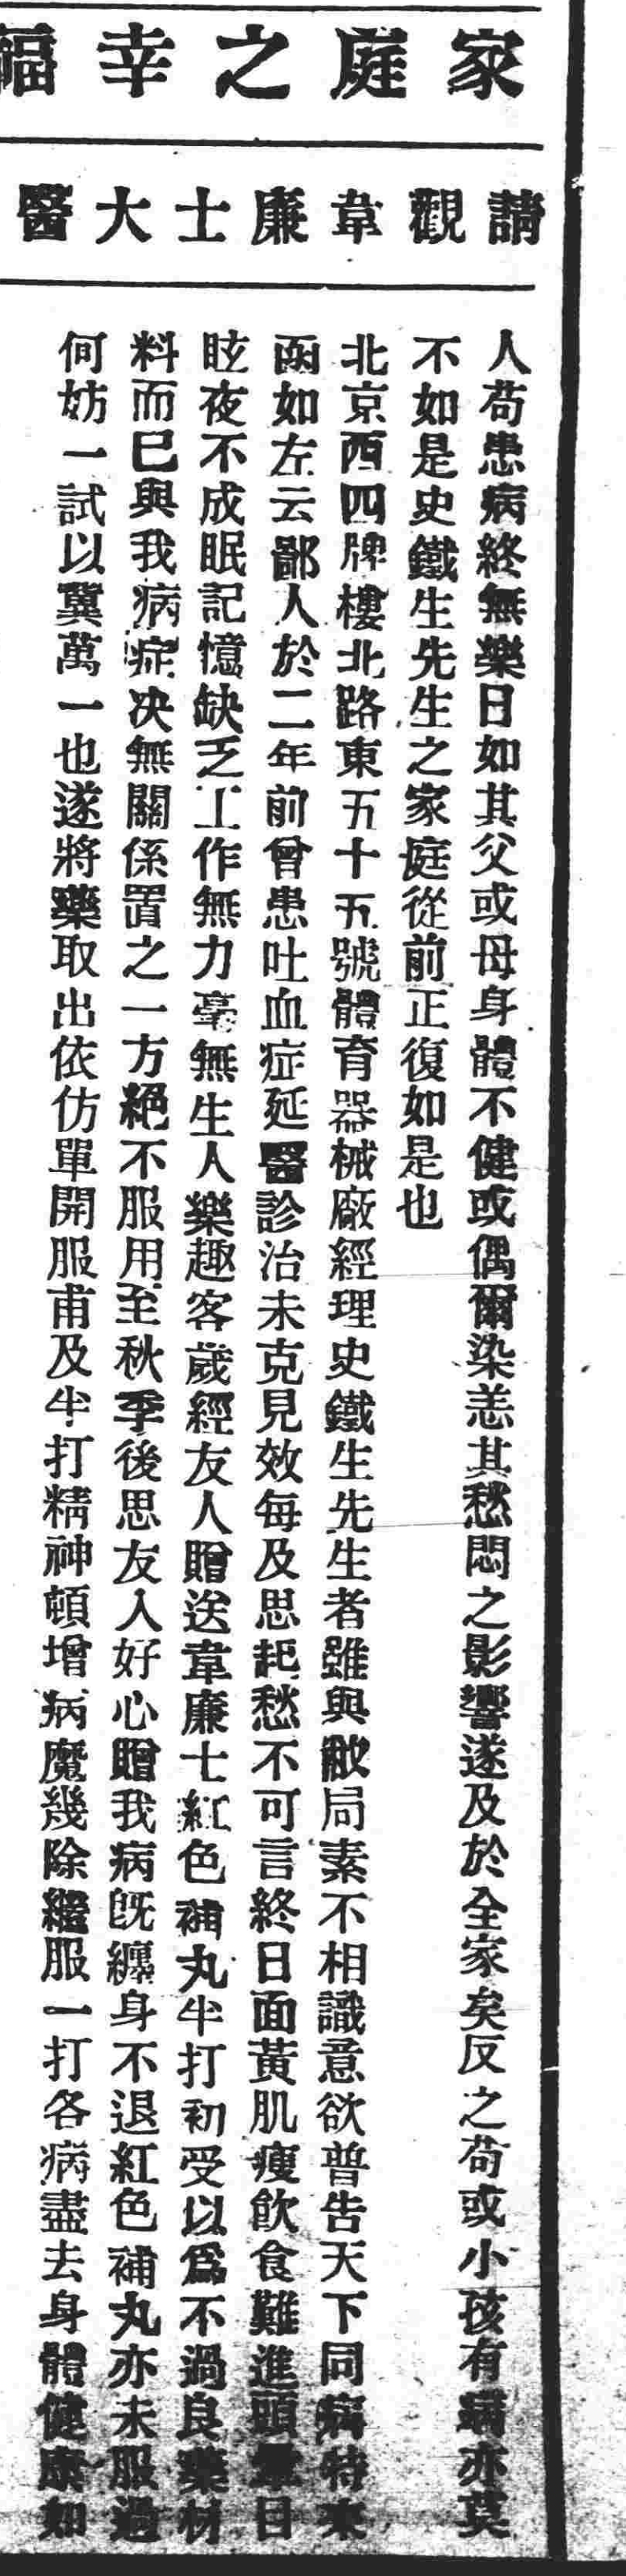 家庭之幸福
請觀韋廉士大醫
人苟患病終無樂日如其父或母身體不健或偶爾染恙其愁悶之影響遂及於全家矣反之苟或小孩有病亦莫
不如是史鐵生先生之家庭從前正復如是也
北京西四牌樓北路東五十五號體育器械廠經理史鐵生先生者雖與敝局素不相識意欲普告天下同病特來
函如左云鄙人於二年前曾患吐血症延醫診治未克見效每及思起愁不可言終日面黃肌瘦飲食難進頭暈目
眩夜不成眠記憶缺乏工作無力毫無生人樂趣客歲經友人贈送韋廉士紅色補丸半打初受以爲不過良藥材
料而已與我病症决無關係置之一方絕不服用至秋季後思友人好心贈我病旣纏身不退紅色補丸亦未服過
何妨一試以冀萬一也遂將藥取出依仿單開服甫及半打精神頓增病魔幾除繼服一打各病盡去身體健康如